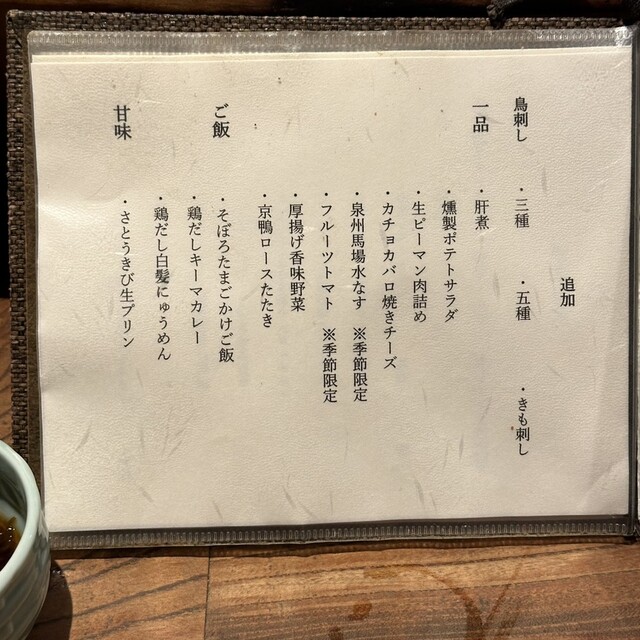 追加
鳥刺し ・三種 ・五種 ・きも刺し
一品 ・肝煮
・燻製ポテトサラダ
・生ピーマン肉詰め
・カチョカバロ焼きチーズ
・泉州馬場水なす ※季節限定
・フルーツトマト ※季節限定
・厚揚げ香味野菜
・京鴨ロースたたき
ご飯 ・そぼろたまごかけご飯
・鶏だしキーマカレー
・鶏だし白髪にゅうめん
甘味 ・さとうきび生プリン